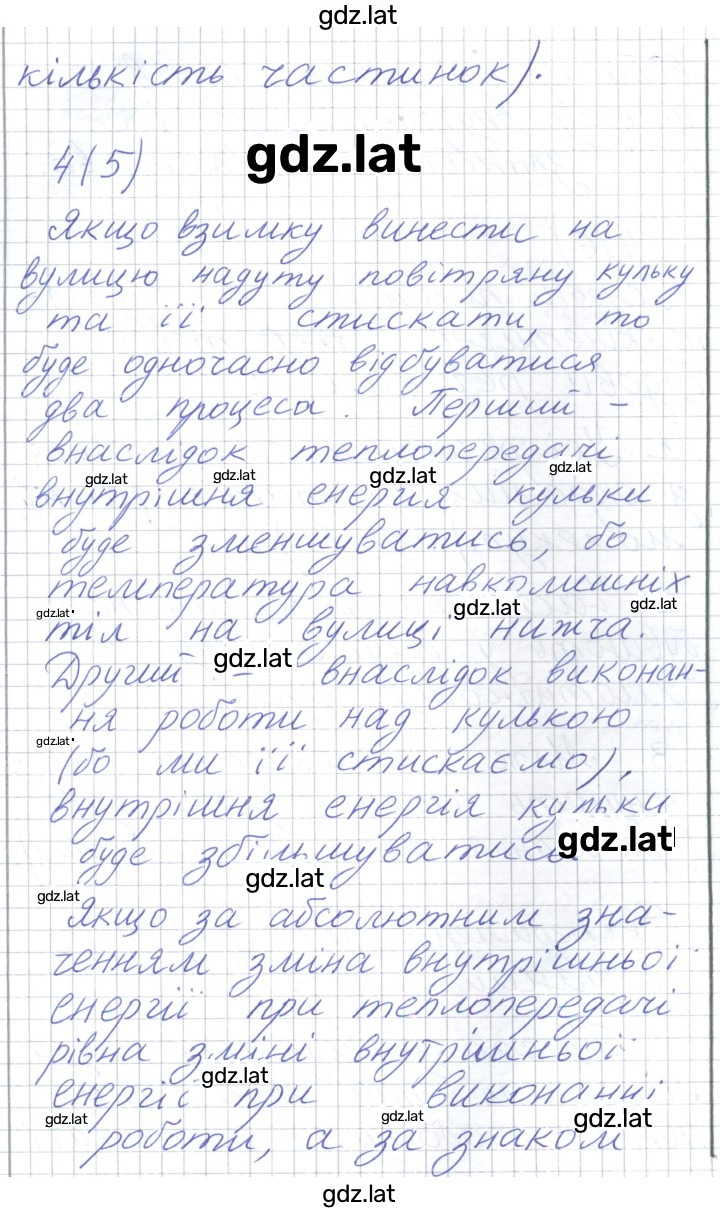 gdz.lat
кількість частинок).
4(5)
gdz.lat
Якщо взимку винести на
вулицю надуту повітряну кульку
та її стискати, то
буде одночасно відбуватися
два процеса. Перший -
внаслідок теплопередачі
gdz.lat gdz.lat gdz.lat gdz.lat
внутрішня енергія кульки
буде зменшуватись, бо
температура навколишніх
gdz.lat gdz.lat gdz.lat
тіл на вулиці нижча.
gdz.lat
Другий - внаслідок виконан-
ня роботи над кулькою
gdz.lat
(бо ми її стискаємо),
внутрішня енергія кульки
gdz.lat
буде збільшуватись
gdz.lat
gdz.lat
Якщо за абсолютним зна-
ченням зміна внутрішньої
енергії при теплопередачі
рівна зміні внутрішньої
gdz.lat
енергії при виконанні
gdz.lat gdz.lat gdz.lat
роботи, а за знаком
gdz.lat